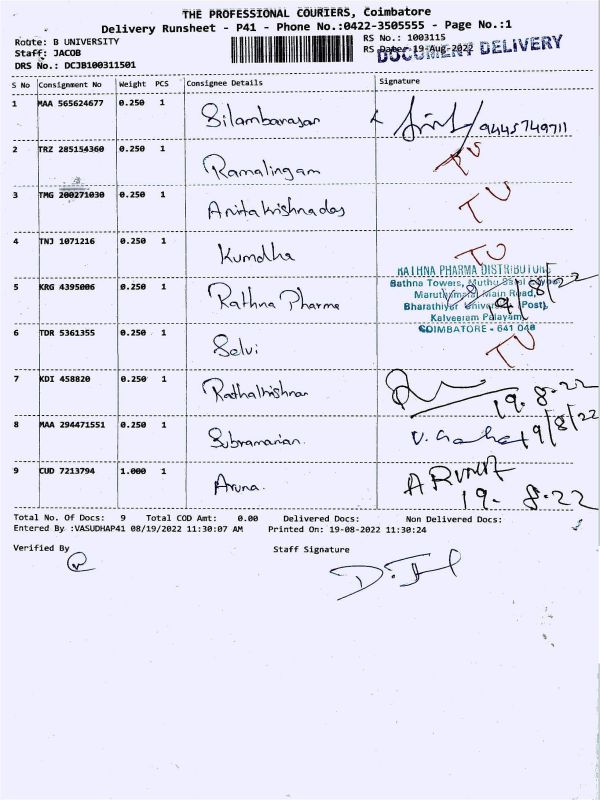 THE PROFESSIONAL COURIERS, Coimbatore
Delivery Runsheet - P41 - Phone No.:0422-3505555 - Page No.:1
Route: B UNIVERSITY
RS No.: 1003115
Staff: JACOB
RS Date: 19-Aug-2022
DOCUMENT DELIVERY
DRS No.: DCJB100311501
S No Consignment No Weight PCS Consignee Details Signature
1 MAA 565624677 0.250 1 Silambarasan 9445749711
2 TRZ 285154360 0.250 1 Ramalingam TU
3 TMG 200271030 0.250 1 Anitakrishnadas TU
4 TNJ 1071216 0.250 1 Kumdha TU
RATHNA PHARMA DISTRIBUTORS
Rathna Towers, Muthu
Maruthamalai Main Road,
Bharathiyar University (Post),
Kalveeram Palayam,
COIMBATORE - 641 046
5 KRG 4395006 0.250 1 Rathna Pharma 19/8/22
6 TDR 5361355 0.250 1 Selvi TU
7 KDI 458820 0.250 1 Radhakrishnan 19.8.22
8 MAA 294471551 0.250 1 Subramanian. 19/8/22
9 CUD 7213794 1.000 1 Aruna. ARUNA
19.8.22
Total No. Of Docs: 9 Total COD Amt: 0.00 Delivered Docs: Non Delivered Docs:
Entered By :VASUDHAP41 08/19/2022 11:30:07 AM Printed On: 19-08-2022 11:30:24
Verified By Staff Signature